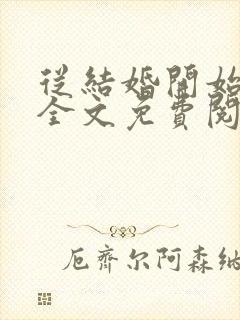 從結婚開始
全文免費閱
厄齊尔阿森納